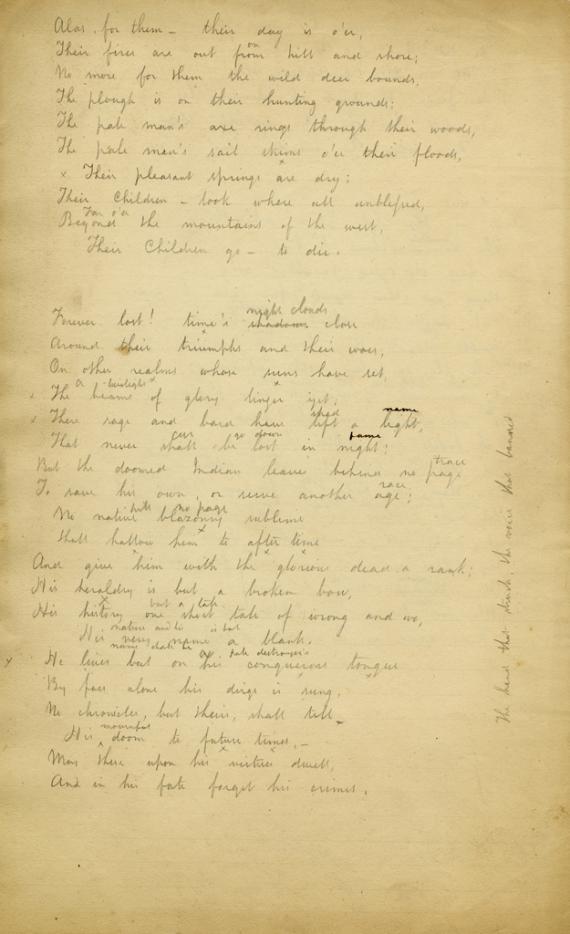 Alas, for them — their day is o'er,
on
Their fires are out from hill and shore;
No more for them the wild deer bounds,
The plough is on their hunting grounds;
The pale man's axe rings through their woods,
The pale man's sail skims o'er their floods,
x Their pleasant springs are dry;
Their Children — look where all
Far o'er
Beyond the mountains of the west,
Their Children go — to die.
night clouds
Forever lost! time's shadows close
Around their triumphs and their woes,
On other realms whose suns have set,
A twilight
x The beams of glory linger yet;
shed name
x There sage and bard have left a light,
e'er go down fame
That never shall be lost in night;
trace
But the doomed Indian leave behind no page
race
To save his own, or serve another age;
with no page
No native blazonry sublime
Shall hallow him to after time
And give him with the glorious dead a rank;
His heraldry is but a broken bow,
but a tale
His history one short tale of wrong and wo,
is but
His very name a blank.
name date
fate destroyer's
x He lives but on his conqueror's tongue
By foes alone his dirge is sung,
No chronicler, but theirs, shall tell
mournful
His doom to future times, —
May these upon his virtues dwell,
And in his fate forget his crimes.
The hand that the voice that